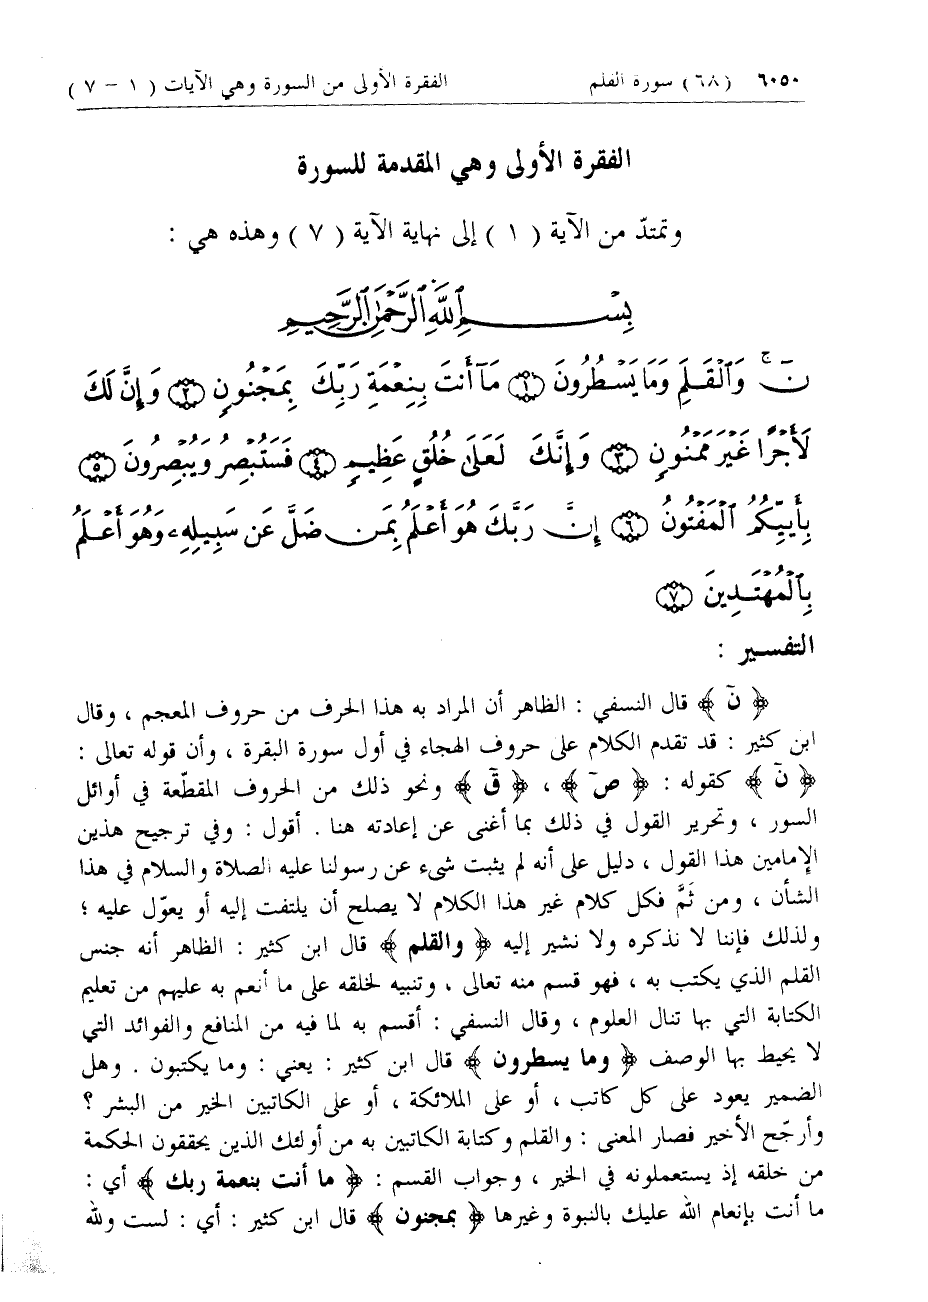 ٦٠٥٠ (٦٨) سورة القلم الفقرة الأولى من السورة وهي الآيات ( ١ - ٧ )
الفقرة الأولى وهي المقدمة للسورة
وتمتدّ من الآية ( ١ ) إلى نهاية الآية ( ٧ ) وهذه هي :
بِسْمِ ٱللَّهِ ٱلرَّحْمَٰنِ ٱلرَّحِيمِ
نٓ ۚ وَٱلْقَلَمِ وَمَا يَسْطُرُونَ ۝١ مَآ أَنتَ بِنِعْمَةِ رَبِّكَ بِمَجْنُونٍ ۝٢ وَإِنَّ لَكَ
لَأَجْرًا غَيْرَ مَمْنُونٍ ۝٣ وَإِنَّكَ لَعَلَىٰ خُلُقٍ عَظِيمٍ ۝٤ فَسَتُبْصِرُ وَيُبْصِرُونَ ۝٥
بِأَييِّكُمُ ٱلْمَفْتُونُ ۝٦ إِنَّ رَبَّكَ هُوَ أَعْلَمُ بِمَن ضَلَّ عَن سَبِيلِهِۦ وَهُوَ أَعْلَمُ
بِٱلْمُهْتَدِينَ ۝٧
التفسير :
﴿ نٓ ﴾ قال النسفي : الظاهر أن المراد به هذا الحرف من حروف المعجم ، وقال
ابن كثير : قد تقدم الكلام على حروف الهجاء في أول سورة البقرة ، وأن قوله تعالى :
﴿ نٓ ﴾ كقوله : ﴿ صٓ ﴾ ، ﴿ قٓ ﴾ ونحو ذلك من الحروف المقطّعة في أوائل
السور ، وتحرير القول في ذلك بما أغنى عن إعادته هنا . أقول : وفي ترجيح هذين
الإمامين هذا القول ، دليل على أنه لم يثبت شىء عن رسولنا عليه الصلاة والسلام في هذا
الشأن ، ومن ثَمَّ فكل كلام غير هذا الكلام لا يصلح أن يلتفت إليه أو يعوّل عليه ؛
ولذلك فإننا لا نذكره ولا نشير إليه ﴿ والقلم ﴾ قال ابن كثير : الظاهر أنه جنس
القلم الذي يكتب به ، فهو قسم منه تعالى ، وتنبيه لخلقه على ما أنعم به عليهم من تعليم
الكتابة التي بها تنال العلوم ، وقال النسفي : أقسم به لما فيه من المنافع والفوائد التي
لا يحيط بها الوصف ﴿ وما يسطرون ﴾ قال ابن كثير : يعني : وما يكتبون . وهل
الضمير يعود على كل كاتب ، أو على الملائكة ، أو على الكاتبين الخير من البشر ؟
وأرجّح الأخير فصار المعنى : والقلم وكتابة الكاتبين به من أولئك الذين يحققون الحكمة
من خلقه إذ يستعملونه في الخير ، وجواب القسم : ﴿ ما أنت بنعمة ربك ﴾ أي :
ما أنت بإنعام الله عليك بالنبوة وغيرها ﴿ بمجنون ﴾ قال ابن كثير : أي : لست ولله